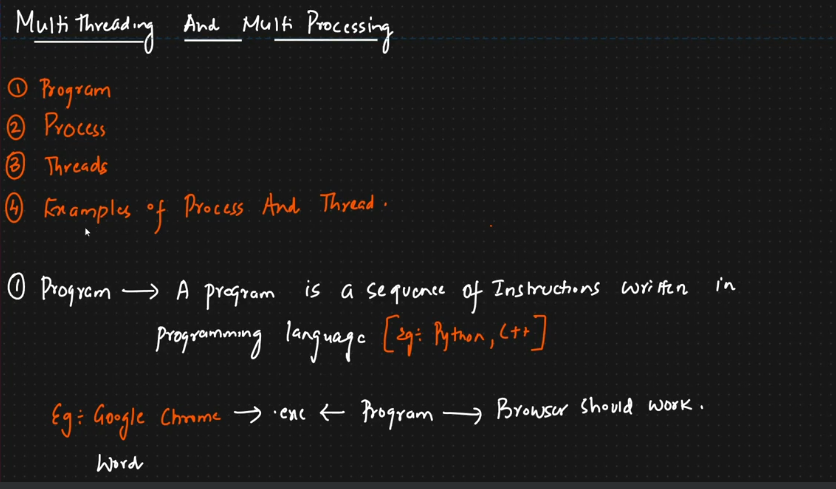 Multi Threading And Multi Processing
① Program
② Process
③ Threads
④ Examples of Process And Thread.
① Program → A program is a sequence of Instructions written in
programming language [Eg: Python, C++]
Eg: Google Chrome → .exe ← Program → Browser should work.
Word